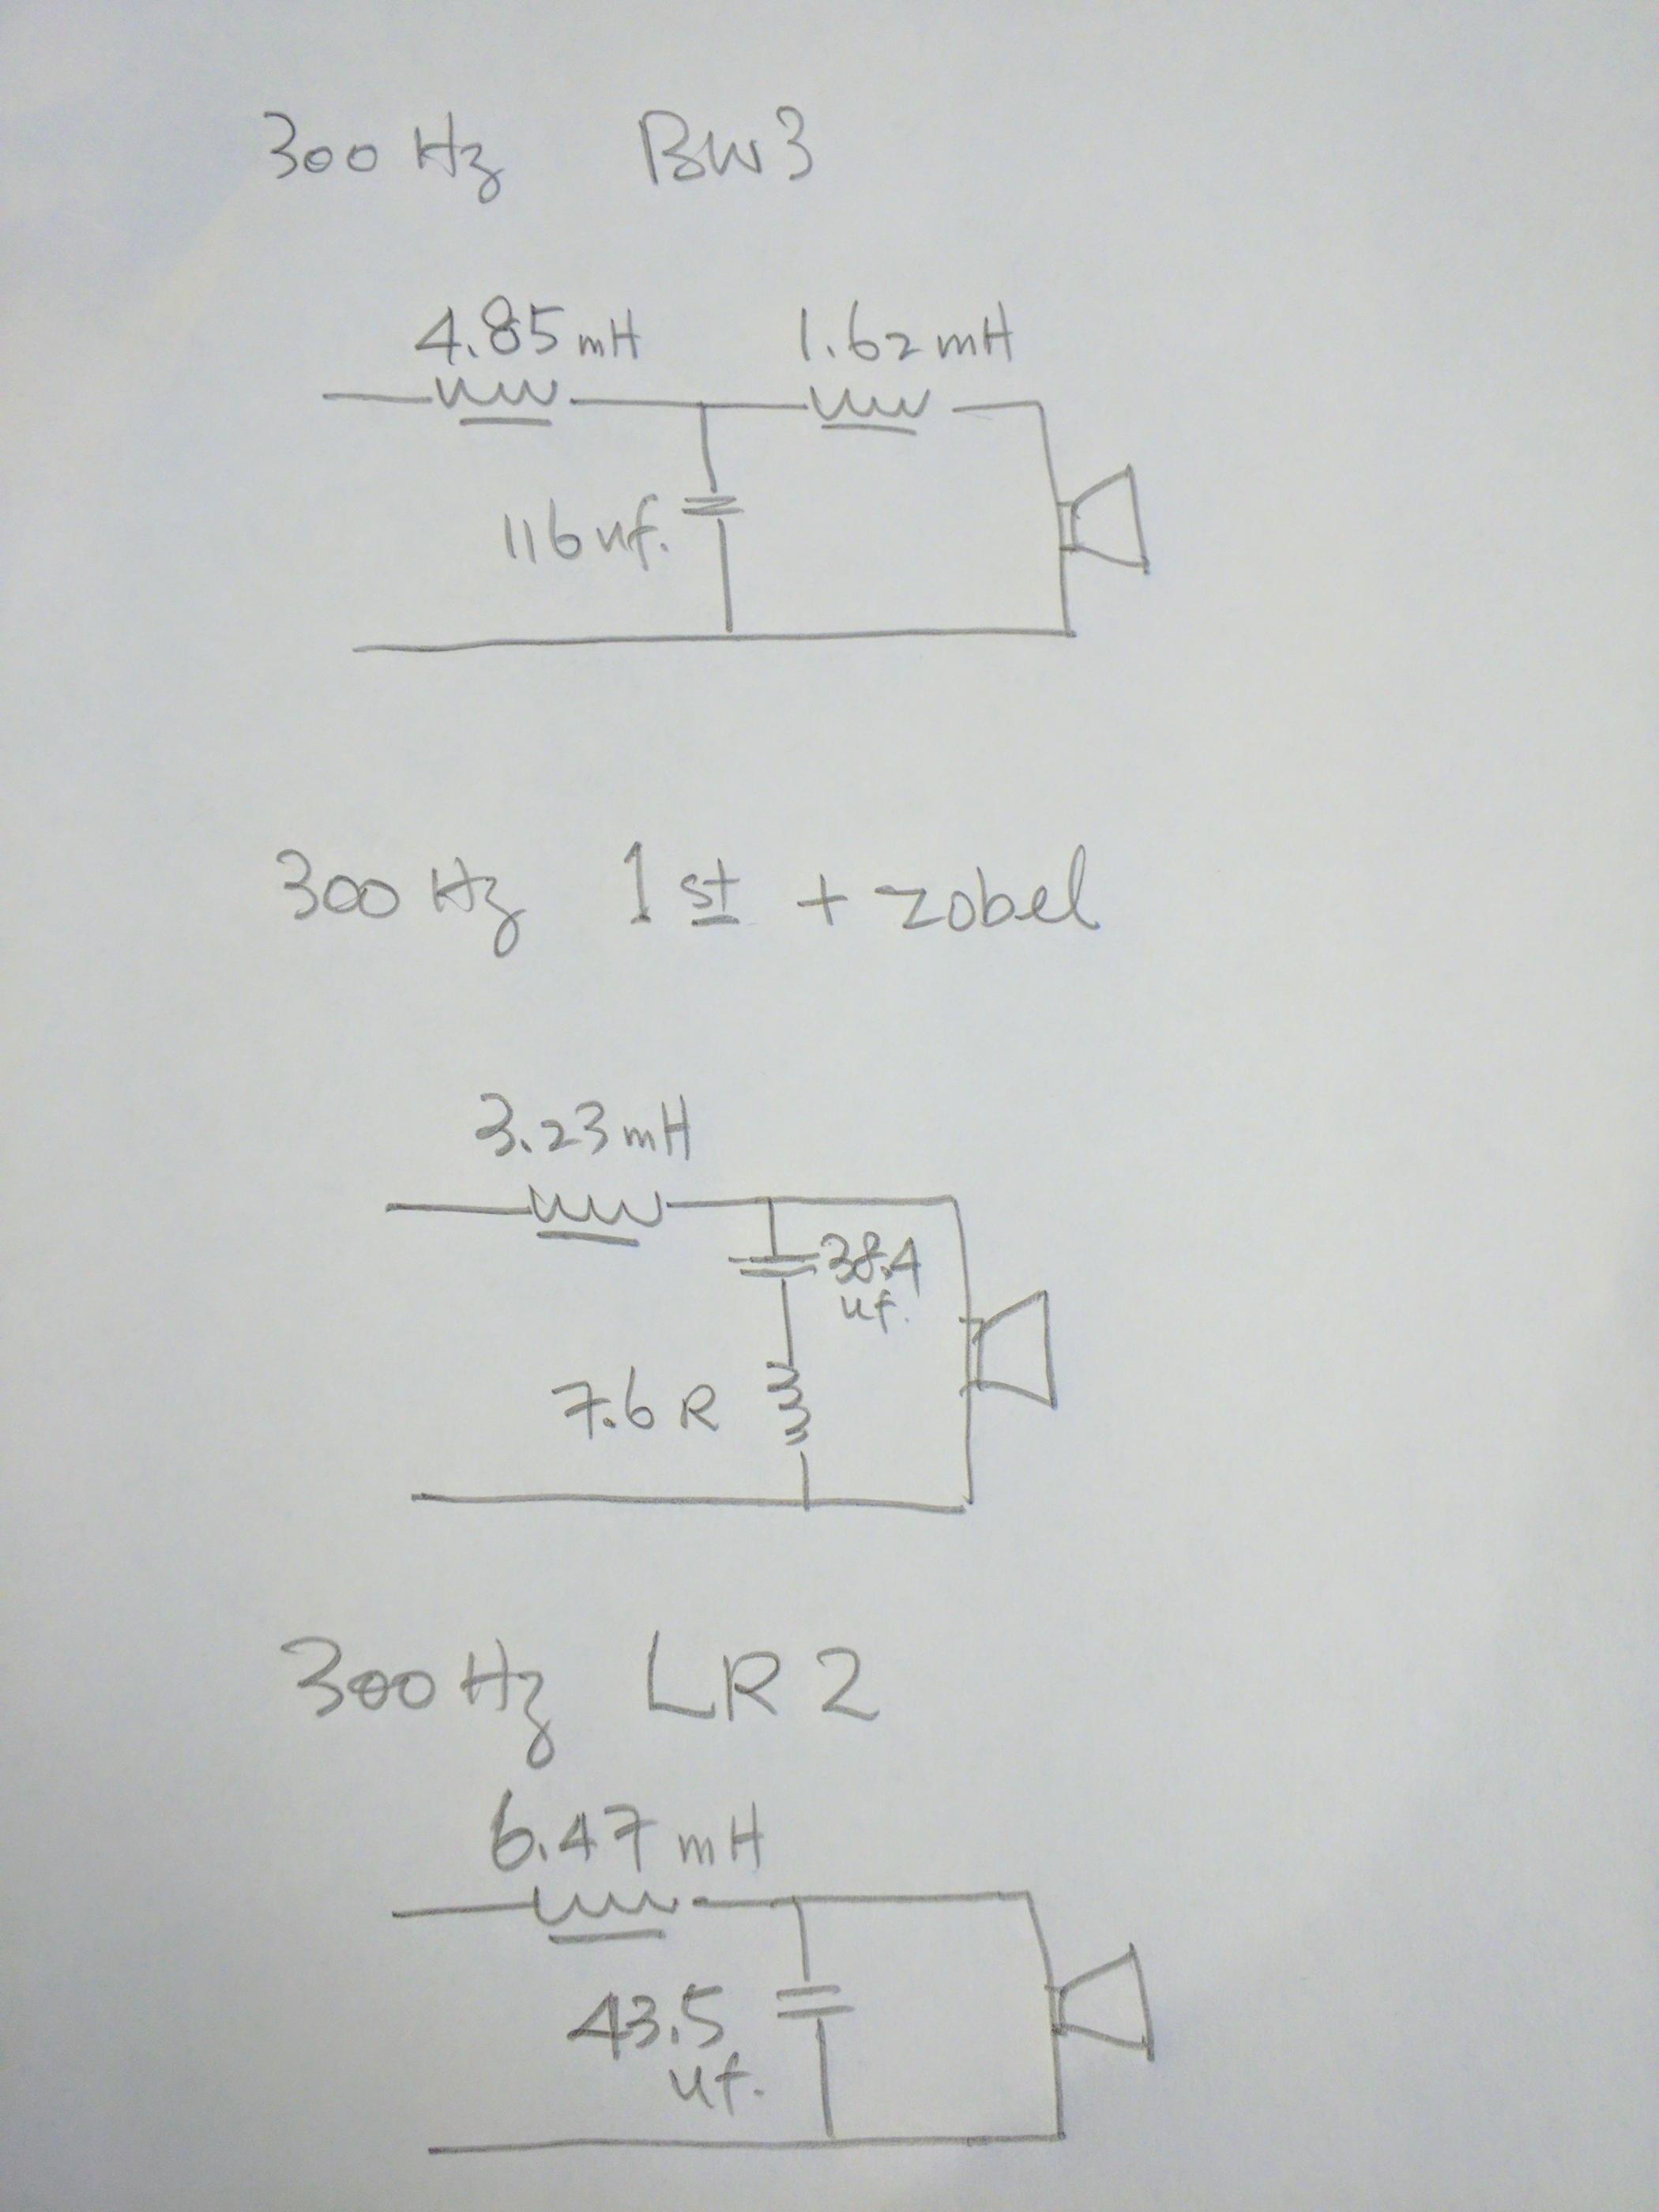 300 Hz BW3
4.85 mH 1.62 mH
116 uf.
300 Hz 1st + zobel
3.23 mH
38.4
uf.
7.6 R
300 Hz LR2
6.47 mH
43.5
uf.